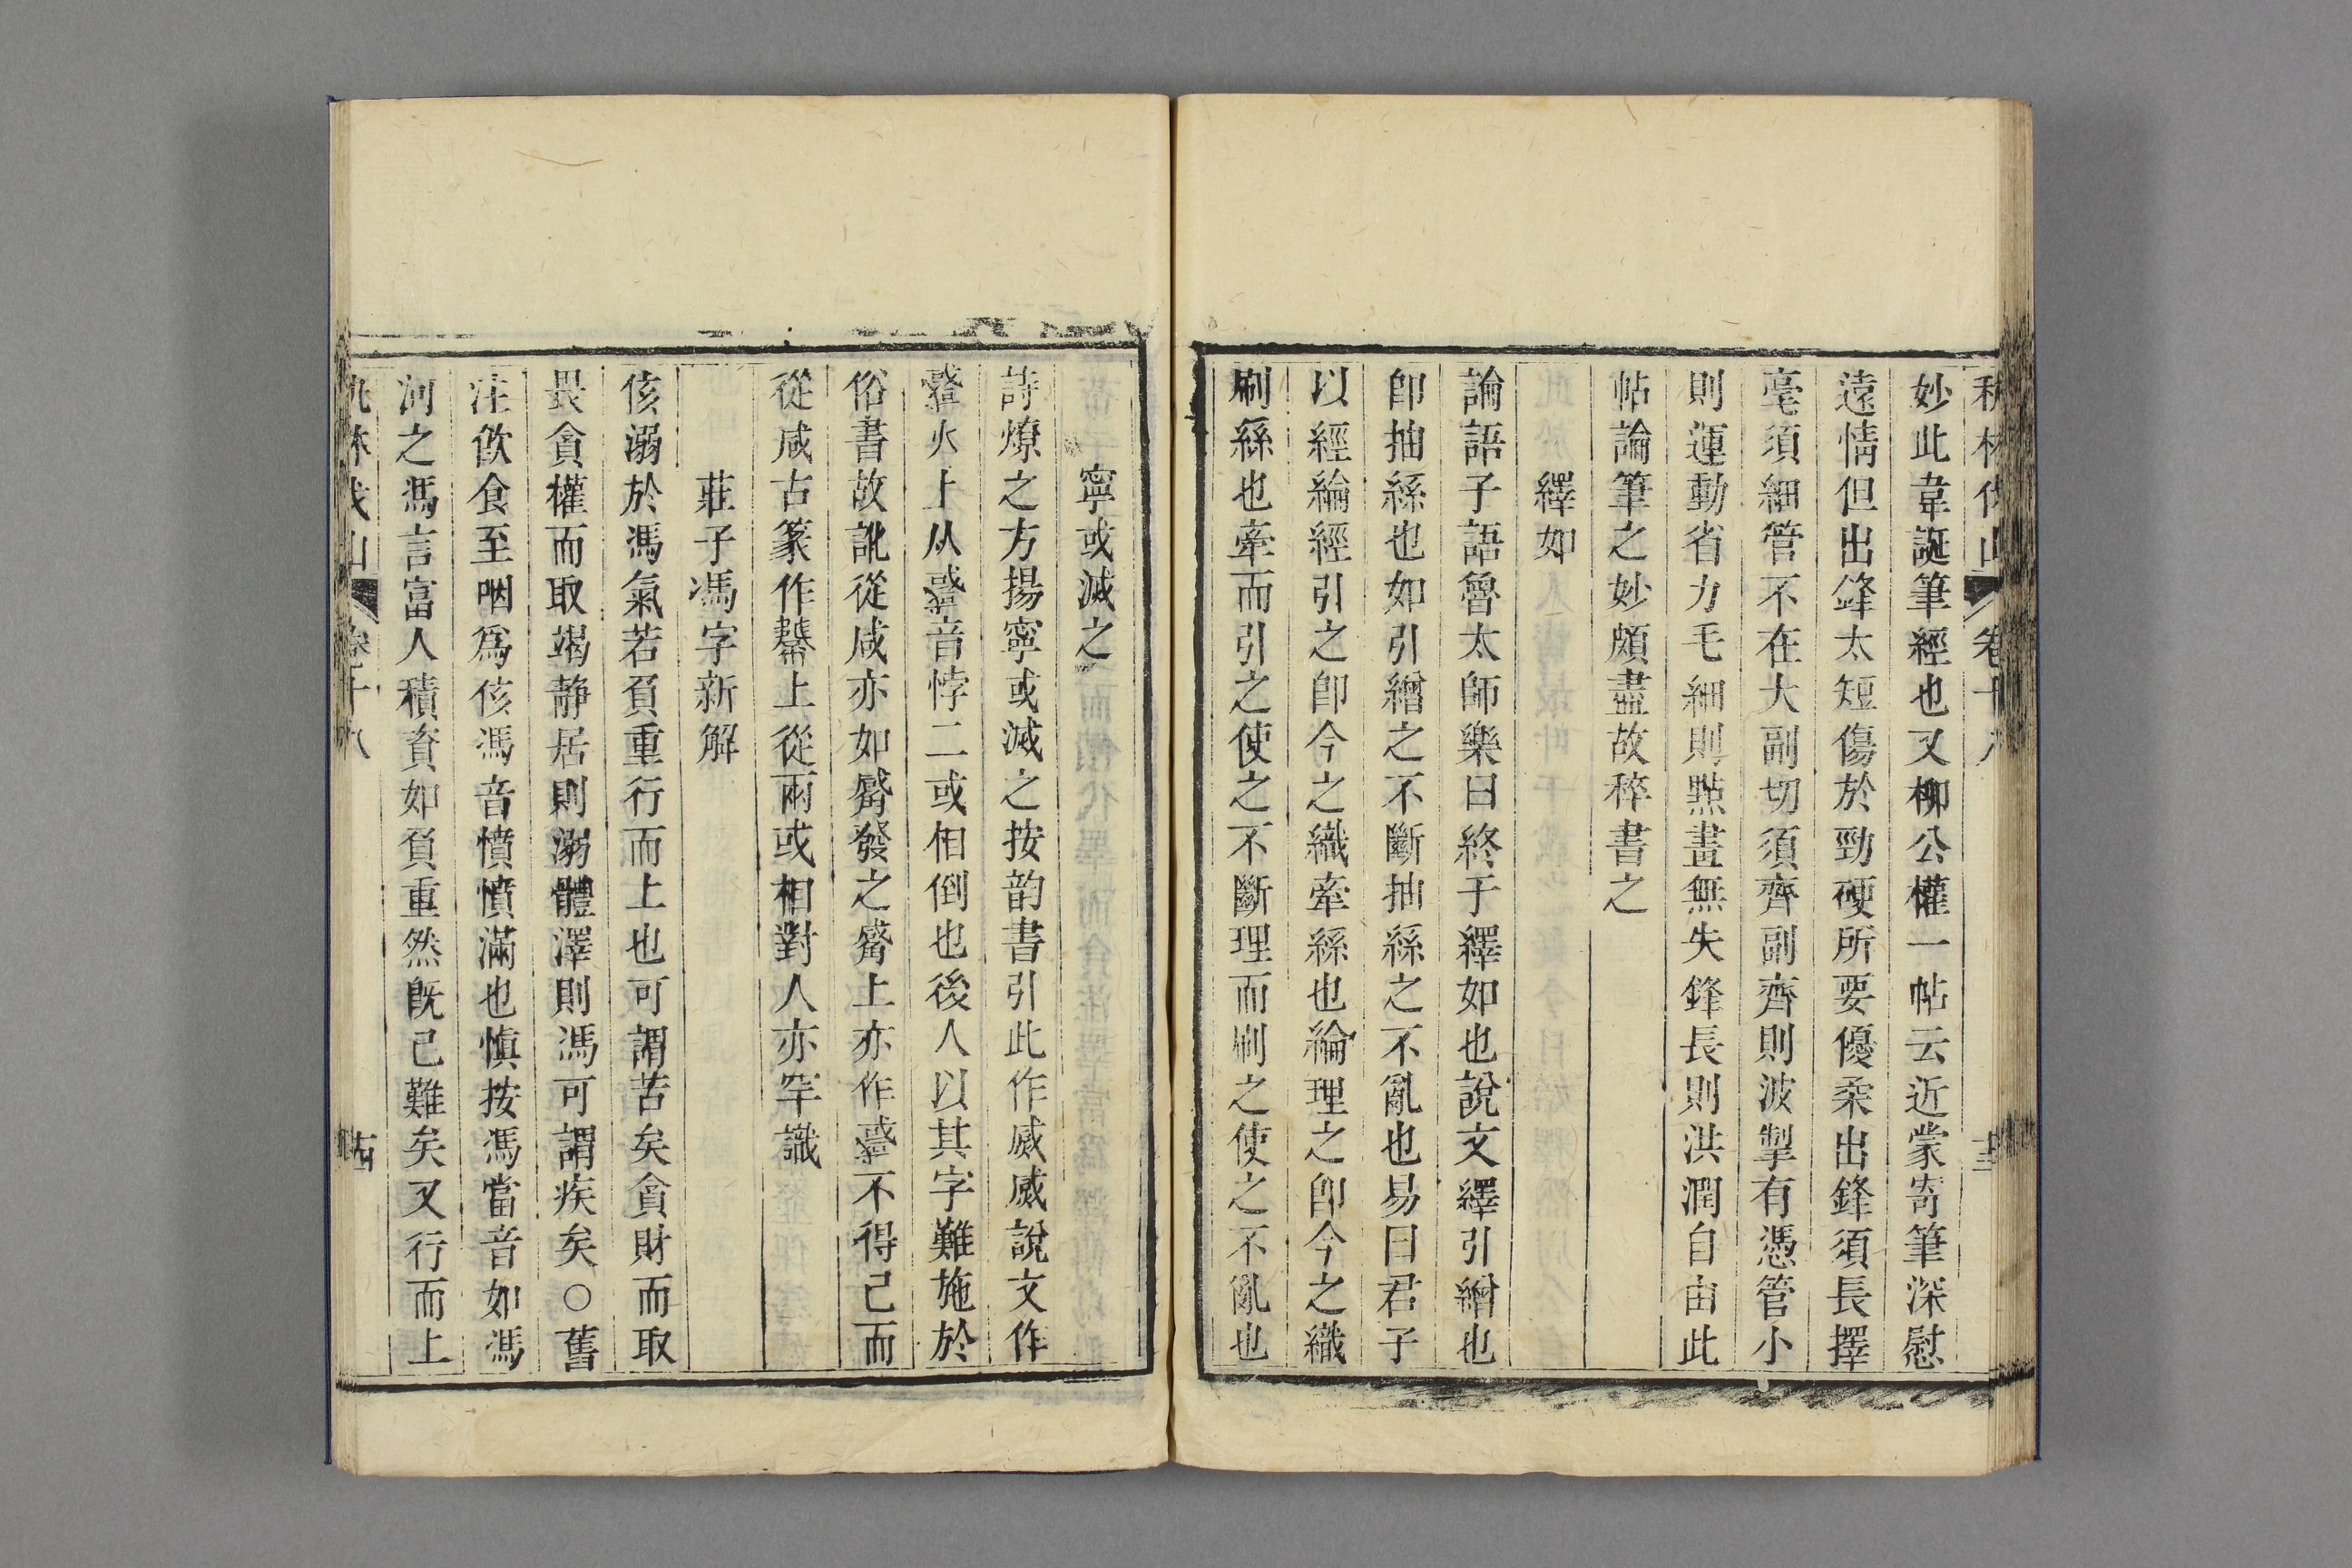 秋林伐山 卷十八 十三
妙此韋誕筆經也又柳公權一帖云近蒙寄筆深慰
遠情但出鋒太短傷於勁硬所要優柔出鋒須長擇
毫須細管不在大副切須齊副齊則波掣有憑管小
則運動省力毛細則點畫無失鋒長則洪潤自由此
帖論筆之妙頗盡故稡書之
繹如
論語子語魯太師樂曰終于繹如也說文繹引繒也
即抽絲也如引繒之不斷抽絲之不亂也易曰君子
以經綸經引之即今之織牽絲也綸理之即今之織
刷絲也牽而引之使之不斷理而刷之使之不亂也
寧或滅之
詩燎之方揚寧或滅之按韵書引此作烕烕說文作
火上从音悖二或相倒也後人以其字難施於
俗書故訛從咸亦如觱發之觱上亦作不得已而
從咸古篆作上從兩或相對人亦罕識
莊子馮字新解
侅溺於馮氣若負重行而上也可謂苦矣貪財而取
畏貪權而取竭静居則溺體澤則馮可謂疾矣○舊
注飲食至咽爲侅馮音憤憤滿也愼按馮當音如馮
河之馮言富人積資如負重然旣已難矣又行而上
秋林伐山 卷十八 十四